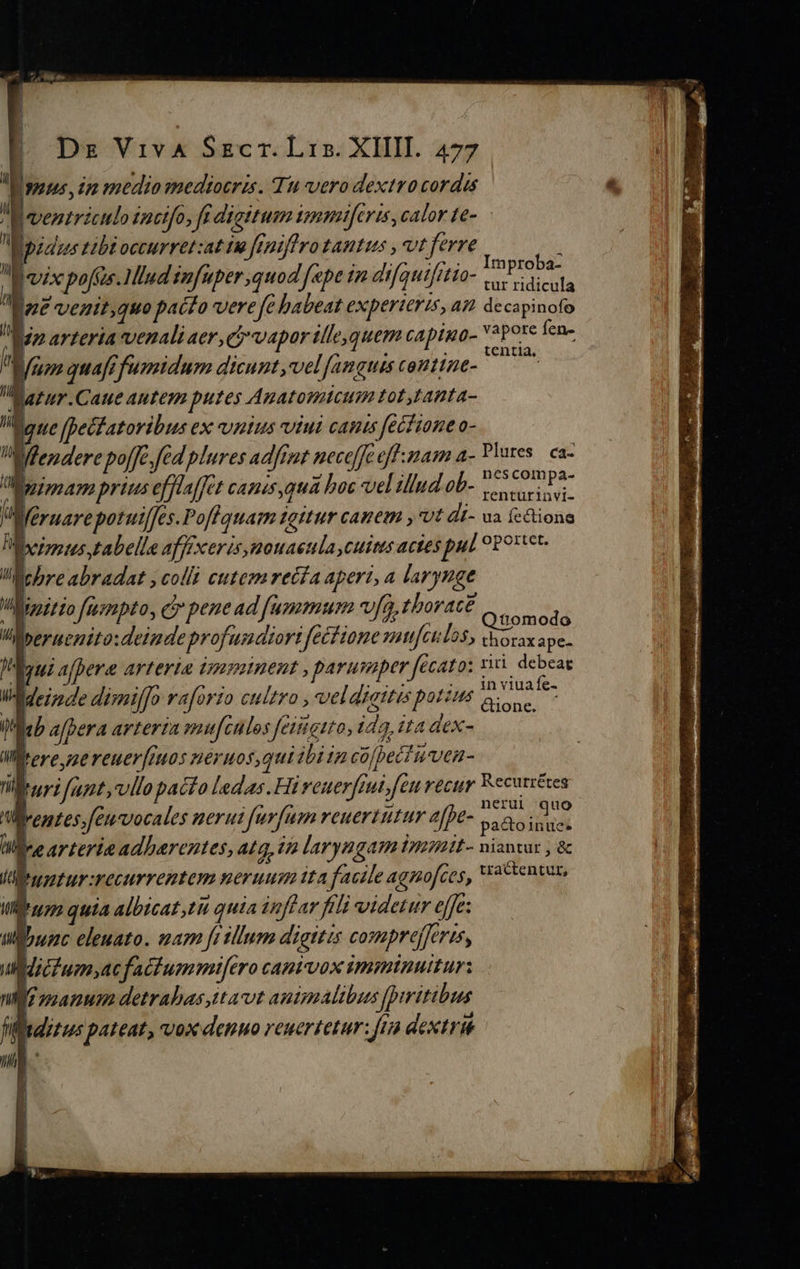 DE VIVA SECT. LIB. XIIII. 477
mus, in medio mediocris. Tu vero dextro cordis
ventriculo inciso, si digitum immiseris, calor te-
pidus tibi occurret: at in sinistro tantus, vt ferre
vix possis. Illud insuper, quod sæpe in disquisitio-
nē venit, quo pacto vere se habeat experieris, an
in arteria venali aer, & vapor ille, quem capino-
sum quasi fumidum dicunt, vel sanguis contine-
atur. Caue autem putes Anatomicum tot, tanta-
que spectatoribus ex vnius viui canis sectione o-
stendere posse, sed plures adsint necesse est: nam a-
nimam prius efflasset canis, quā hoc vel illud ob-
seruare potuisses. Postquam igitur canem, vt di-
ximus, tabellæ affixeris, nouacula, cuius acies pul
chre abradat, colli cutem recta aperi, a larynge
initio sumpto, & pene ad summum vsq, thoracē
peruenito: deinde profundiori sectione musculos,
qui asperæ arteriæ imminent, parumper secato:
deinde dimisso rasorio cultro, vel digitis potius
ab aspera arteria musculos seiūgito, idq, ita dex-
tere, ne reuersiuos neruos, qui ibi in cōspectu ven-
turi sunt, vllo pacto lædas. Hi reuersiui, seu recur
rentes, seu vocales nerui sursum reuertūtur aspe-
ræ arteriæ adhærentes, atq, in laryngam immit-
tuntur: recurrentem neruum ita facile agnosces,
tum quia albicat, tū quia instar fili videtur esse:
hunc eleuato. nam si illum digitis compresseris,
dictum, ac factum misero cani vox imminuitur:
si manum detrahas, ita vt animalibus spiritibus
aditus pateat, vox denuo reuertetur: sin dextrū
Improba-
tur ridicula
de capinoso
vapore sen-
tentia.
Plures ca-
nes compa-
rentur in vi-
ua sectione
oportet.
Quomodo
thorax ape-
riri debeat
in viua se-
ctione.
Recurrētes
nerui quo
pacto inue-
niantur, &
tractentur,